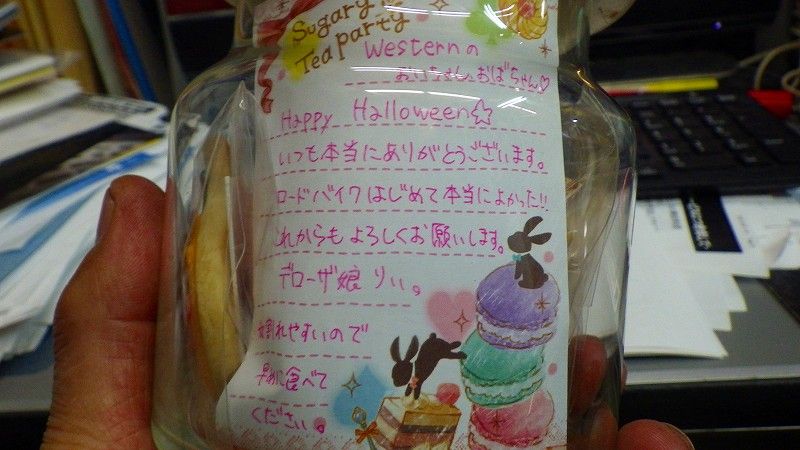 Sugary
Tea party
Westernの
おじちゃん、おばちゃん♡
Happy Halloween☆
いつも本当にありがとうございます。
ロードバイクはじめて本当によかった!!
これからもよろしくお願いします。
デローザ娘 りぃ。
割れやすいので
早めに食べて
ください。